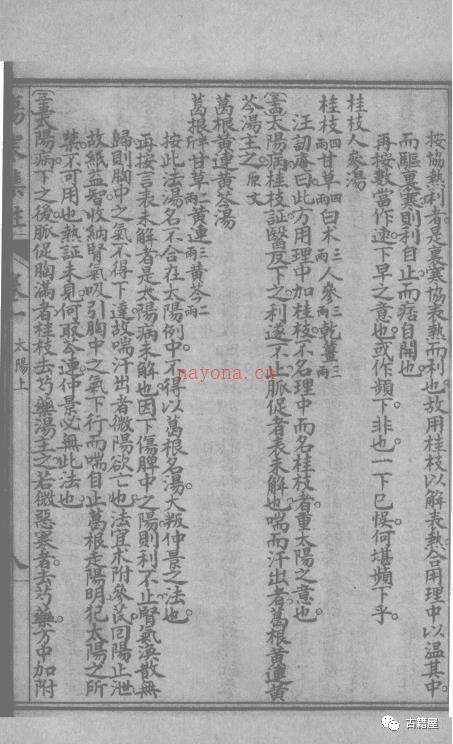 按協熱利者是裏寒協表熱而利也故用桂枝以解表熱合用理中以溫其中
而驅裏寒則利自止而痞自開也
再按數當作速下早之意也或作頻下非也一下已悞何堪頻下乎
桂枝人參湯
桂枝四兩甘草四兩白朮三兩人參三兩乾薑三兩
汪訒庵曰此方用理中加桂枝不名理中而名桂枝者重太陽之意也
太陽病桂枝証醫反下之利遂不止脈促者表未解也喘而汗出者葛根黃連黃
芩湯主之原文
葛根黃連黃芩湯
葛根半斤甘草二兩黃連三兩黃芩二兩
按此湯名不合在太陽例中不得以葛根名湯大叛仲景之法也
再按言表未解者是太陽病未解也因下傷脾中之陽則利不止腎氣渙散無
歸則胸中之氣不得下達故喘汗出者微陽欲亡也法宜朮附參芪回陽止泄
故紙益者收納腎氣吸引胸中之氣下行而喘自止葛根走陽明犯太陽之所
禁不可用也熱証未見何取芩連仲景必無此法也
太陽病下之後脈促胸滿者桂枝去芍藥湯主之若微惡寒者去芍藥方中加附
太陽上
nayona.cn
古籍屋